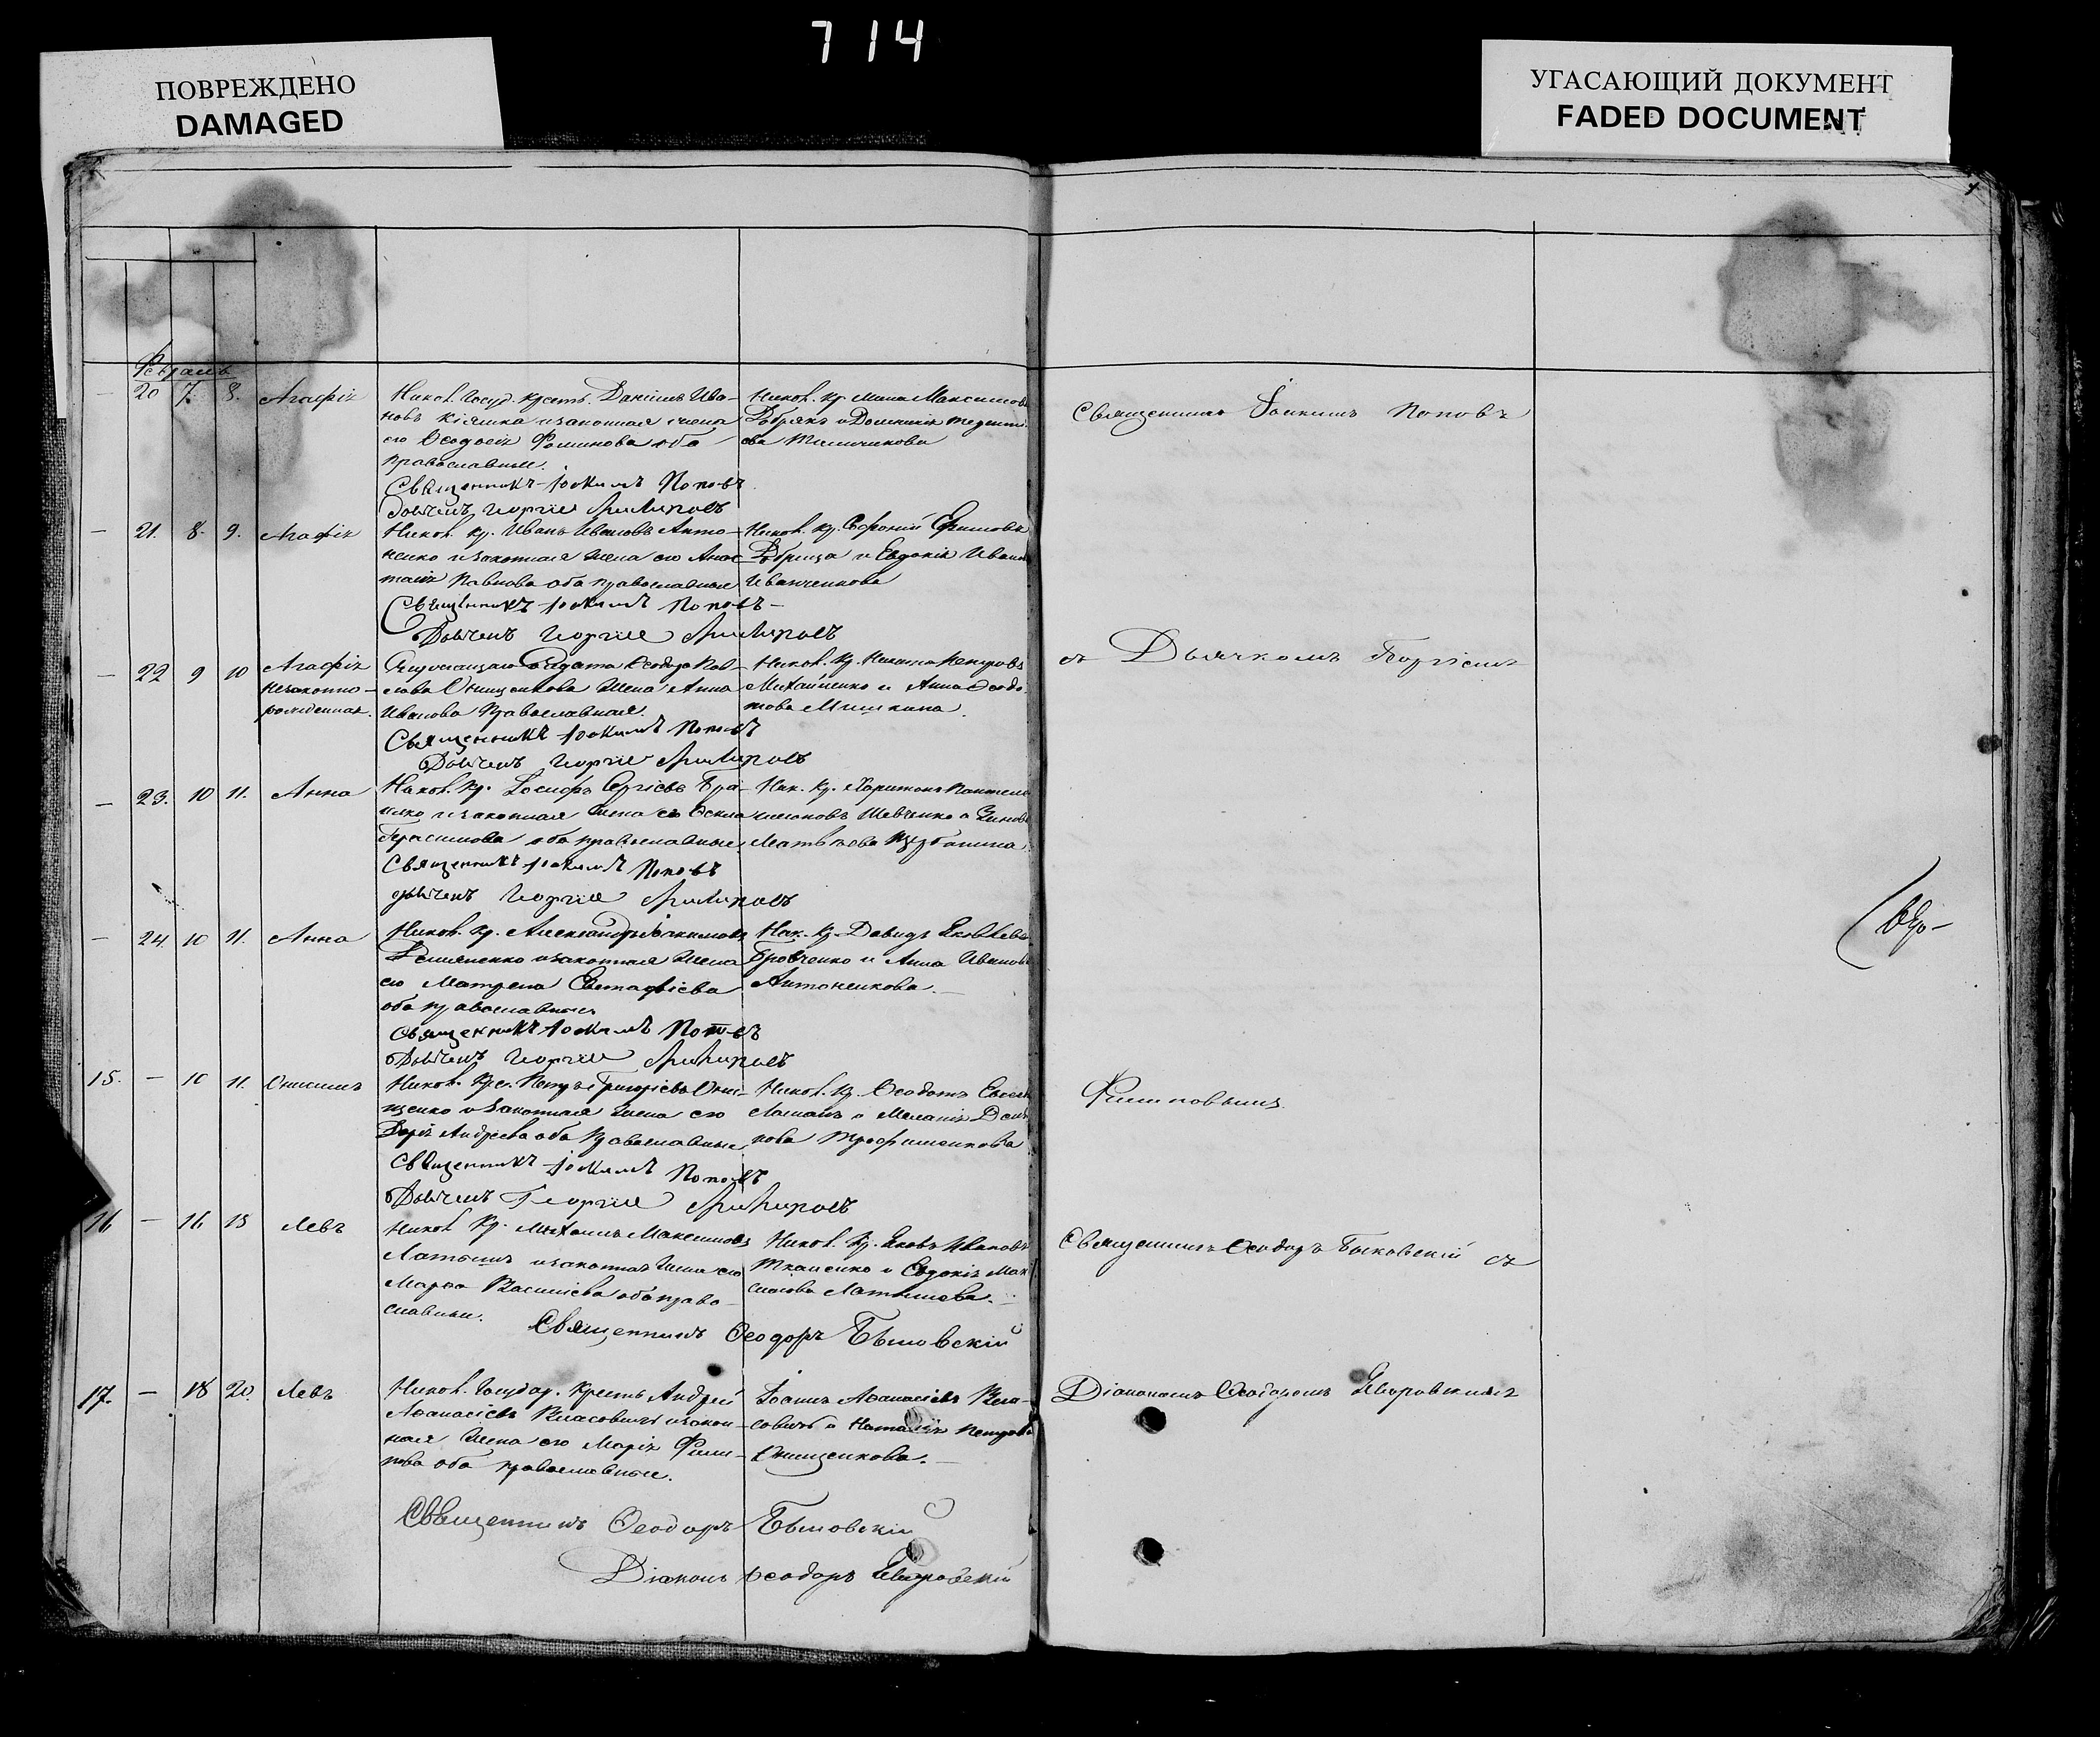 714
ПОВРЕЖДЕНО
DAMAGED
УГАСАЮЩИЙ ДОКУМЕНТ
FADED DOCUMENT
Февраль
— 20 7. 8. Агафія
Никол. Госуд. крест. Даніилъ Ива-
новъ и законная жена
его Ѳеодосія Филипова оба
православные.
Священникъ Іоакимъ Поповъ
Дьячекъ Георгій Филиповъ
Никол. кр. Мина Максимовъ
Добрякъ и
Священникъ Іоакимъ Поповъ
— 21. 8. 9. Агафія
Никол. кр. Иванъ Ивановъ Анто-
ненко и законная жена его Анас-
тасія Павлова оба православные
Священникъ Іоакимъ Поповъ
Дьячекъ Георгій Филиповъ
Никол. кр. Софоній Ефимовъ
и Евдокія Иванова
Иванченкова
— 22 9 10 Агафія
незаконно-
рожденная.
солдата Ѳеодора Пав-
лова Онищенкова жена Анна
Иванова Православная.
Священникъ Іоакимъ Поповъ
Дьячекъ Георгій Филиповъ
Никол. кр. Никита Петровъ
Михайленко и Анна Ѳеодо-
това Мишкина.
съ Дьячкомъ Георгіемъ
— 23. 10 11. Анна
Никол. кр. Іосифъ Сергіевъ
и законная жена его Ѳекла
Герасимова оба православные
Священникъ Іоакимъ Поповъ
Дьячекъ Георгій Филиповъ
Ник. кр. Харитонъ Пантеле-
имоновъ Шевченко и
Матвѣева
— 24 10 11. Анна
Никол. кр. Александръ Іоакимовъ
Демяненко и законная жена
его Матрена Евстафіева
оба православные
Священникъ Іоакимъ Поповъ
Дьячекъ Георгій Филиповъ
Ник. кр. Давидъ Яковлевъ
Бровченко и Анна Иванова
Антоненкова.—
15. — 10 11. Онисимъ
Никол. кре. Петръ Григорьевъ Они-
щенко и законная жена его
Дарія Андреева оба православные
Священникъ Іоакимъ Поповъ
Дьячекъ Георгій Филиповъ
Никол. кр. Ѳеодотъ
и Меланія
Трофименкова
Филиповымъ.
16 — 16 18 Левъ
Никол. кр. Михаилъ Максимовъ
Латышъ и законная жена его
Марѳа Васильева оба право-
славные.
Священникъ Ѳеодоръ Быковскій
Никол. кр. Яковъ Ивановъ
Ткаченко и Евдокія Мак-
симова Латышева.—
Священникъ Ѳеодоръ Быковскій съ
17. — 18 20. Левъ
Никол. Государ. Крестъ. Андрей
Аѳанасіевъ Власовичъ и закон-
ная жена его Марія Фили-
пова оба православные.
Іоаннъ Аѳанасіевъ Вла-
совичъ и Наталія Петрова
Онищенкова.—
Священникъ Ѳеодоръ Быковскій
Діаконъ Ѳеодоръ Яворовскій
Діакономъ Ѳеодоромъ Яворовскимъ